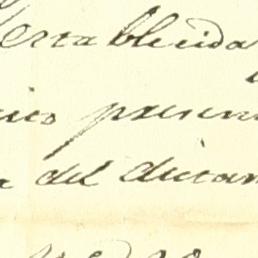 establecida
ico presen
a del dictam